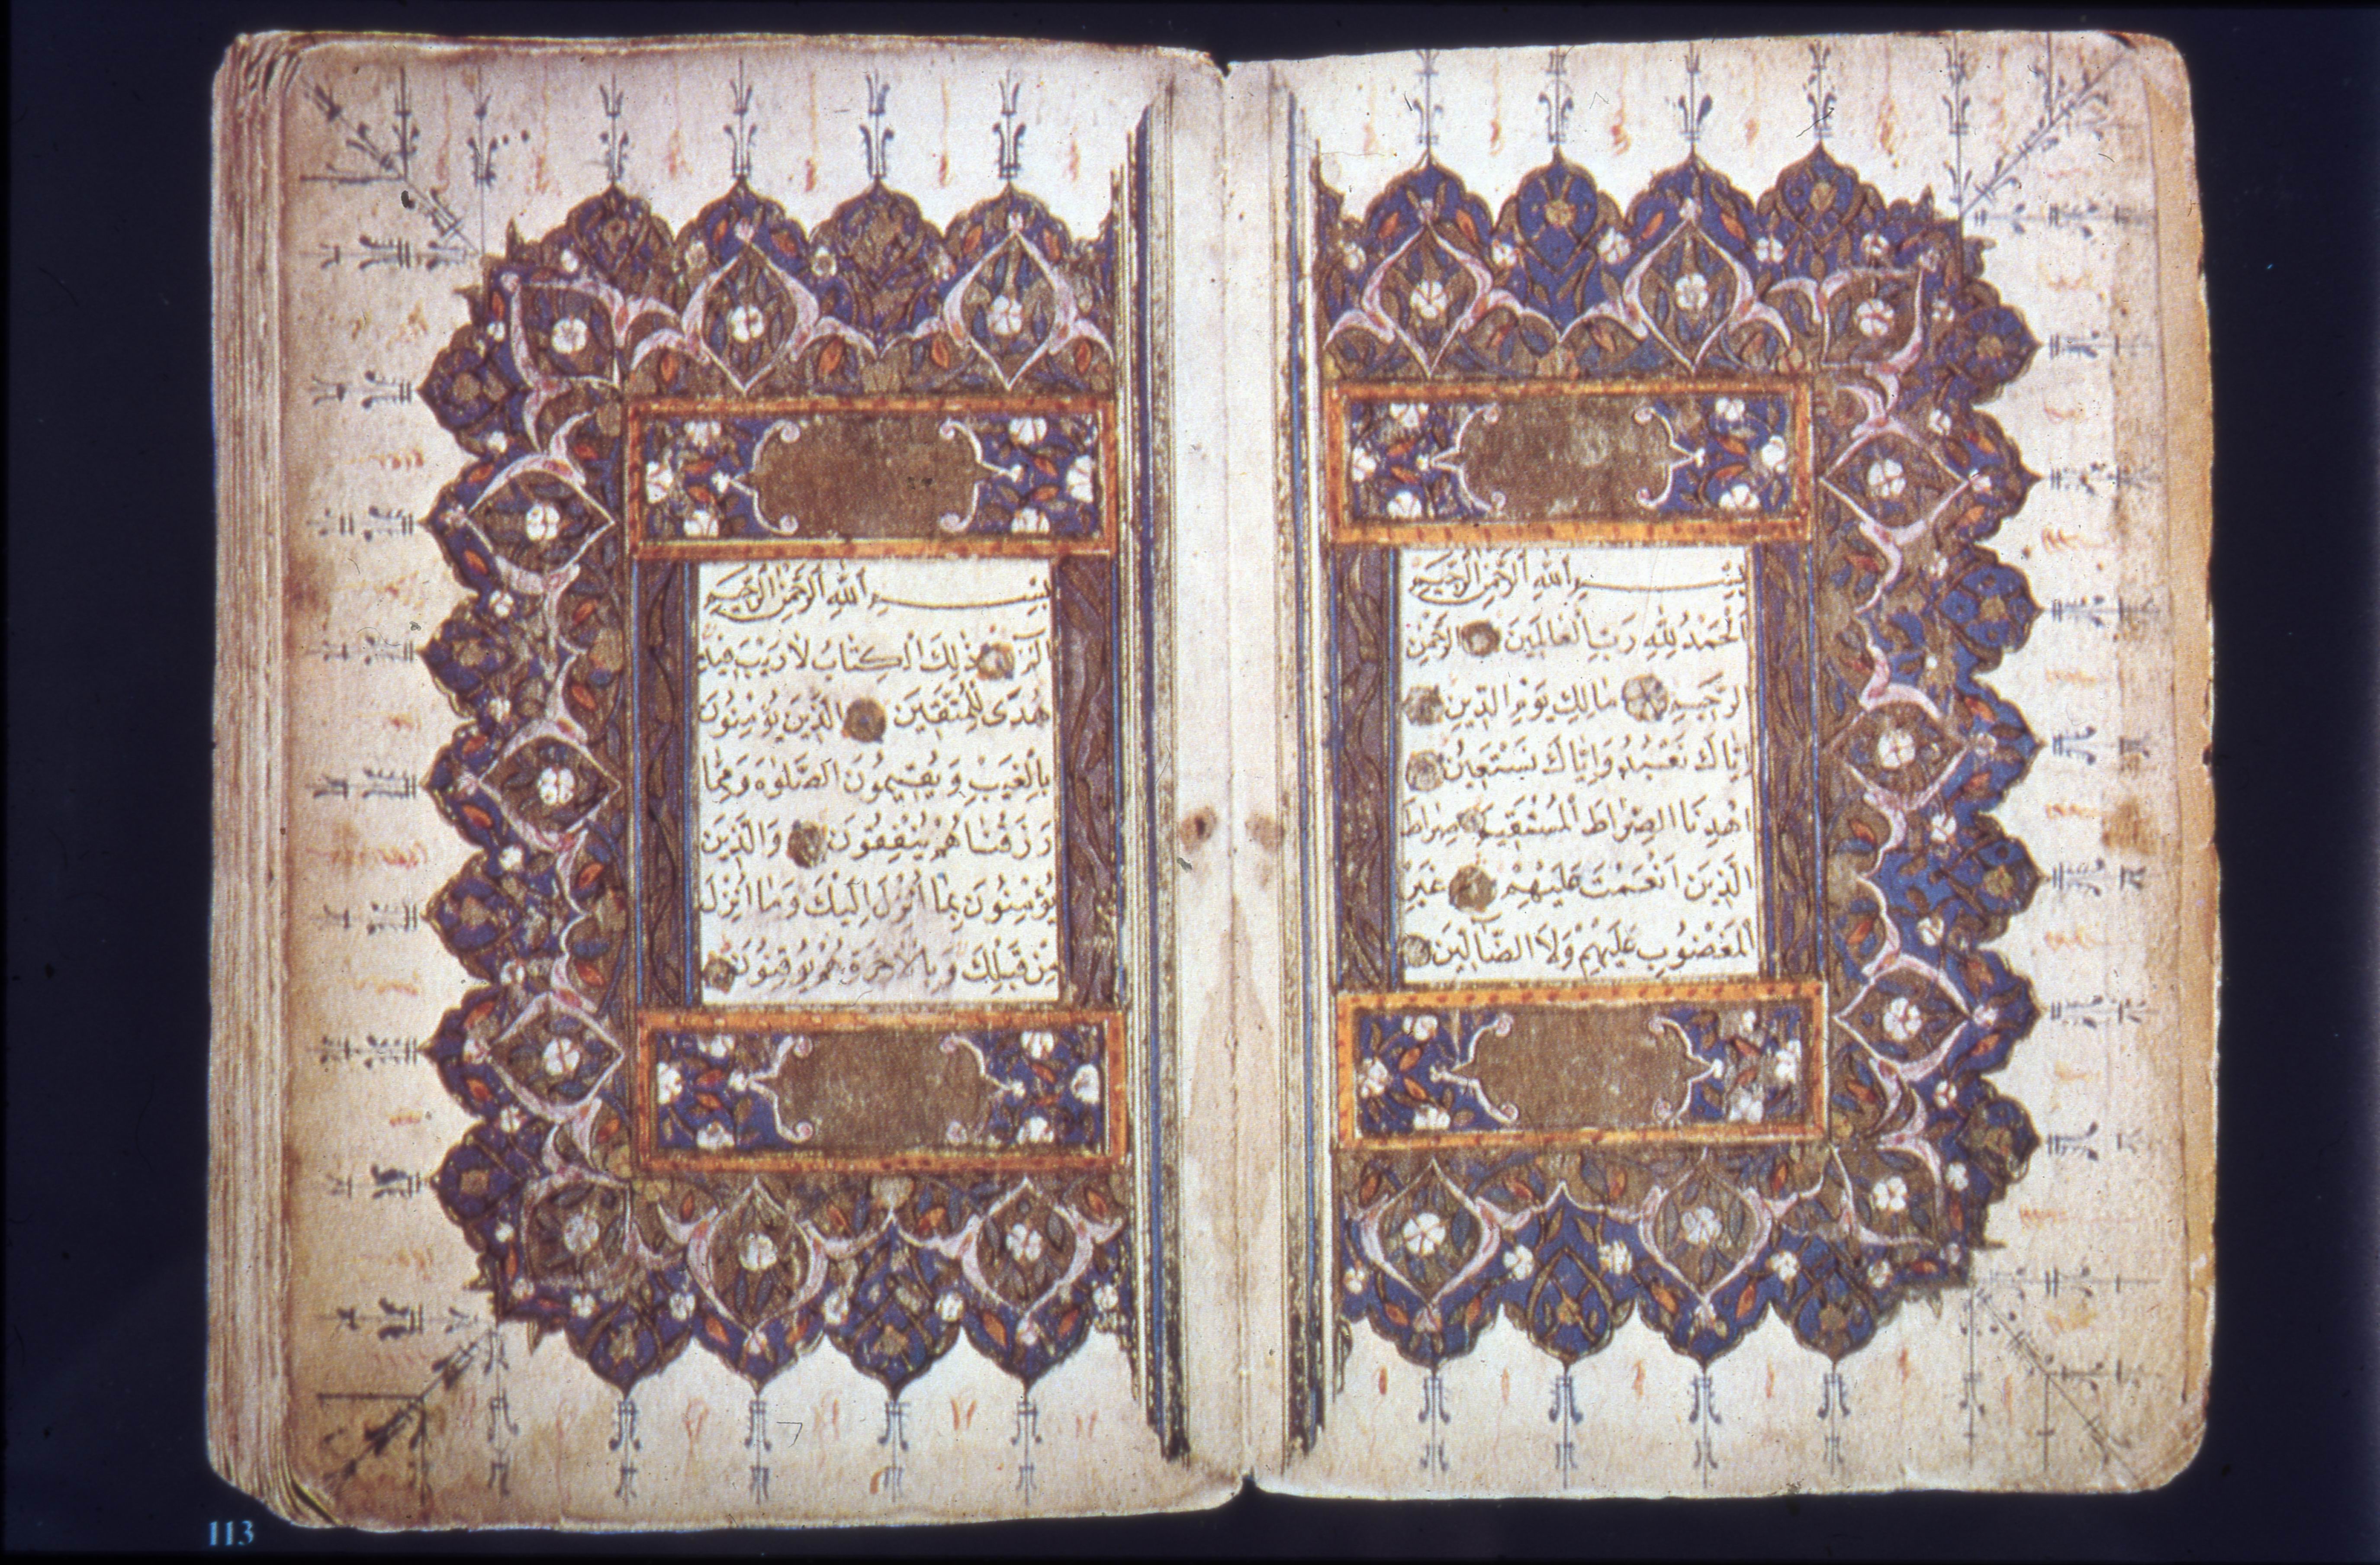 بِسْمِ اللهِ الرَّحْمٰنِ الرَّحِيمِ
الْحَمْدُ لِلّٰهِ رَبِّ الْعَالَمِينَ الرَّحْمٰنِ
الرَّحِيمِ مَالِكِ يَوْمِ الدِّينِ
إِيَّاكَ نَعْبُدُ وَإِيَّاكَ نَسْتَعِينُ
اهْدِنَا الصِّرَاطَ الْمُسْتَقِيمَ صِرَاطَ
الَّذِينَ أَنْعَمْتَ عَلَيْهِمْ غَيْرِ
الْمَغْضُوبِ عَلَيْهِمْ وَلَا الضَّالِّينَ
بِسْمِ اللهِ الرَّحْمٰنِ الرَّحِيمِ
الٓمٓ ذٰلِكَ الْكِتَابُ لَا رَيْبَ فِيهِ
هُدًى لِلْمُتَّقِينَ الَّذِينَ يُؤْمِنُونَ
بِالْغَيْبِ وَيُقِيمُونَ الصَّلٰوةَ وَمِمَّا
رَزَقْنَاهُمْ يُنْفِقُونَ وَالَّذِينَ
يُؤْمِنُونَ بِمَا أُنْزِلَ إِلَيْكَ وَمَا أُنْزِلَ
مِنْ قَبْلِكَ وَبِالْآخِرَةِ هُمْ يُوقِنُونَ
113